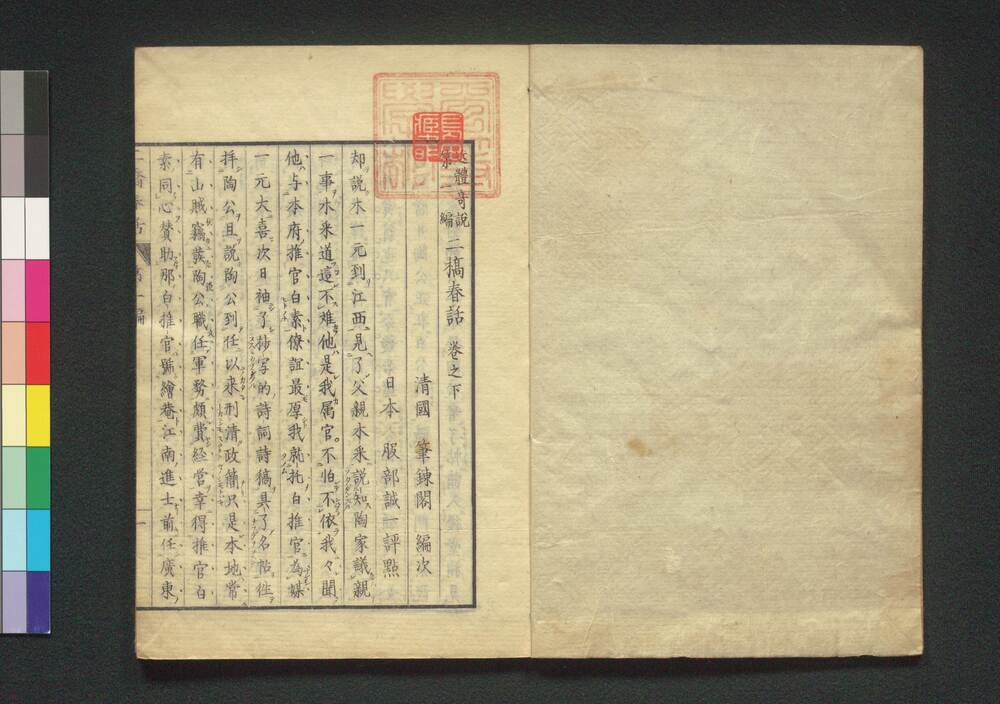 體奇說
二編 二橋春話 巻之下
清國 筆鍊閣 編次
日本 服部誠一 評點
却說木一元到江西見了父親木釆說知陶家議親
一事木釆道這不難他是我属官不怕不依我々聞
他与本府推官白素僚誼最厚我就托白推官為媒
一元大喜次日袖了抄写的詩詞詩稿具了名帖往
拜陶公且說陶公到任以来刑清政簡只是本地常
有山賊竊發陶公職任軍務頗費經営幸得推官白
素同心賛助那白推官號繪菴江南進士前任廣東